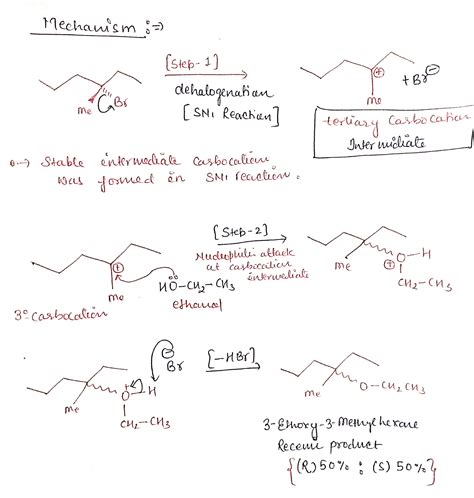 Mechanism :⇒
[Step-1]
Me
Br
dehalogenation
[SN1 Reaction]
⊕
+Br⊖
Me
tertiary Carbocation
Intermidiate
Stable intermediate Carbocation
was formed in SN1 reaction.
[Step-2]
Nucleophilic attack
at carbocation
intermediate
⊕
Me
HÖ-CH2-CH3
ethanol
3° Carbocation
Me
O-H
⊕
CH2-CH3
⊖
Br
[-HBr]
Me
O-H
+
CH2-CH3
Me
O-CH2CH3
3-Ethoxy-3-Methylhexane
Recemic product
{(R) 50% : (S) 50%}